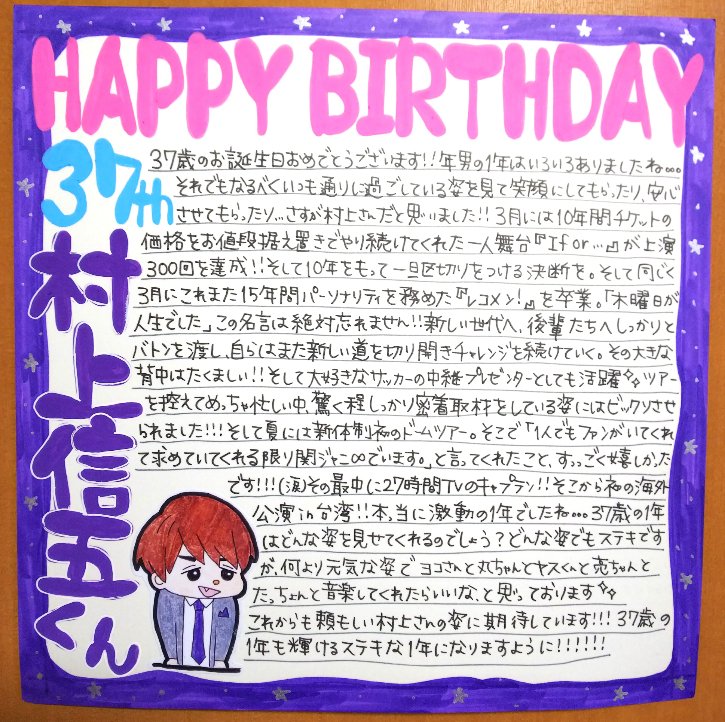 HAPPY BIRTHDAY
37th
村上信五くん
37歳のお誕生日おめでとうございます!!年男の1年はいろいろありましたね…
それでもなるべくいつも通りに過ごしている姿を見て笑顔にしてもらったり、安心
させてもらったり…さすが村上さんだと思いました!!3月には10年間チケットの
価格をお値段据え置きでやり続けてくれた一人舞台『If or…』が上演
300回を達成!!そして10年をもって一旦区切りをつける決断を。そして同じく
3月にこれまた15年間パーソナリティを務めた『レコメン!』を卒業。「木曜日が
人生でした」この名言は絶対忘れません!!新しい世代へ、後輩たちへしっかりと
バトンを渡し、自らはまた新しい道を切り開きチャレンジを続けていく。その大きな
背中はたくましい!!そして大好きなサッカーの中継プレゼンターとしても活躍✧✧ツアー
を控えてめっちゃ忙しい中、驚く程しっかり密着取材をしている姿にはビックリさせ
られました!!!そして夏には新体制初のドームツアー。そこで「1人でもファンがいてくれ
て求めていてくれる限り関ジャニ∞でいます。」と言ってくれたこと、すっっごく嬉しかった
です!!!(涙)その最中に27時間TVのキャプテン!!そこから初の海外
公演in台湾!!本当に激動の1年でしたね…37歳の1年
はどんな姿を見せてくれるのでしょう?どんな姿でもステキです
が、何より元気な姿でヨコさんと丸ちゃんとヤスくんと亮ちゃんと
たっちょんと音楽してくれたらいいな、と思っております✧✧
これからも頼もしい村上さんの姿に期待しています!!!37歳の
1年も輝けるステキな1年になりますように!!!!!!